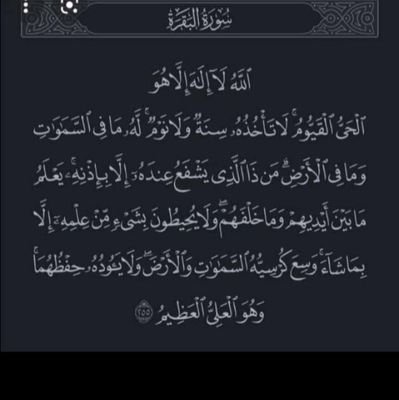 سُورَةُ البَقَرَةِ
اللَّهُ لَا إِلَٰهَ إِلَّا هُوَ
الْحَيُّ الْقَيُّومُ ۚ لَا تَأْخُذُهُ سِنَةٌ وَلَا نَوْمٌ ۚ لَّهُ مَا فِي السَّمَاوَاتِ
وَمَا فِي الْأَرْضِ ۗ مَن ذَا الَّذِي يَشْفَعُ عِندَهُ إِلَّا بِإِذْنِهِ ۚ يَعْلَمُ
مَا بَيْنَ أَيْدِيهِمْ وَمَا خَلْفَهُمْ ۖ وَلَا يُحِيطُونَ بِشَيْءٍ مِّنْ عِلْمِهِ إِلَّا
بِمَا شَاءَ ۚ وَسِعَ كُرْسِيُّهُ السَّمَاوَاتِ وَالْأَرْضَ ۖ وَلَا يَئُودُهُ حِفْظُهُمَا ۚ
وَهُوَ الْعَلِيُّ الْعَظِيمُ ۝٢٥٥